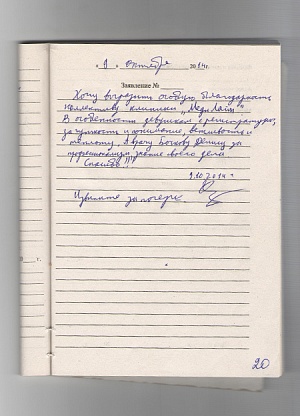 « 9 » октября 2014 г.
Заявление №
Хочу выразить особую благодарность
коллективу клиники "МедиЛайт"
В особенности девушкам с регистратуры,
за чуткость и понимание, вежливость и
теплоту. А врачу Бокову Денису за
профессионализм знание своего дела
Спасибо !!!
9.10.2014 г
Извините за почерк.
г.
20